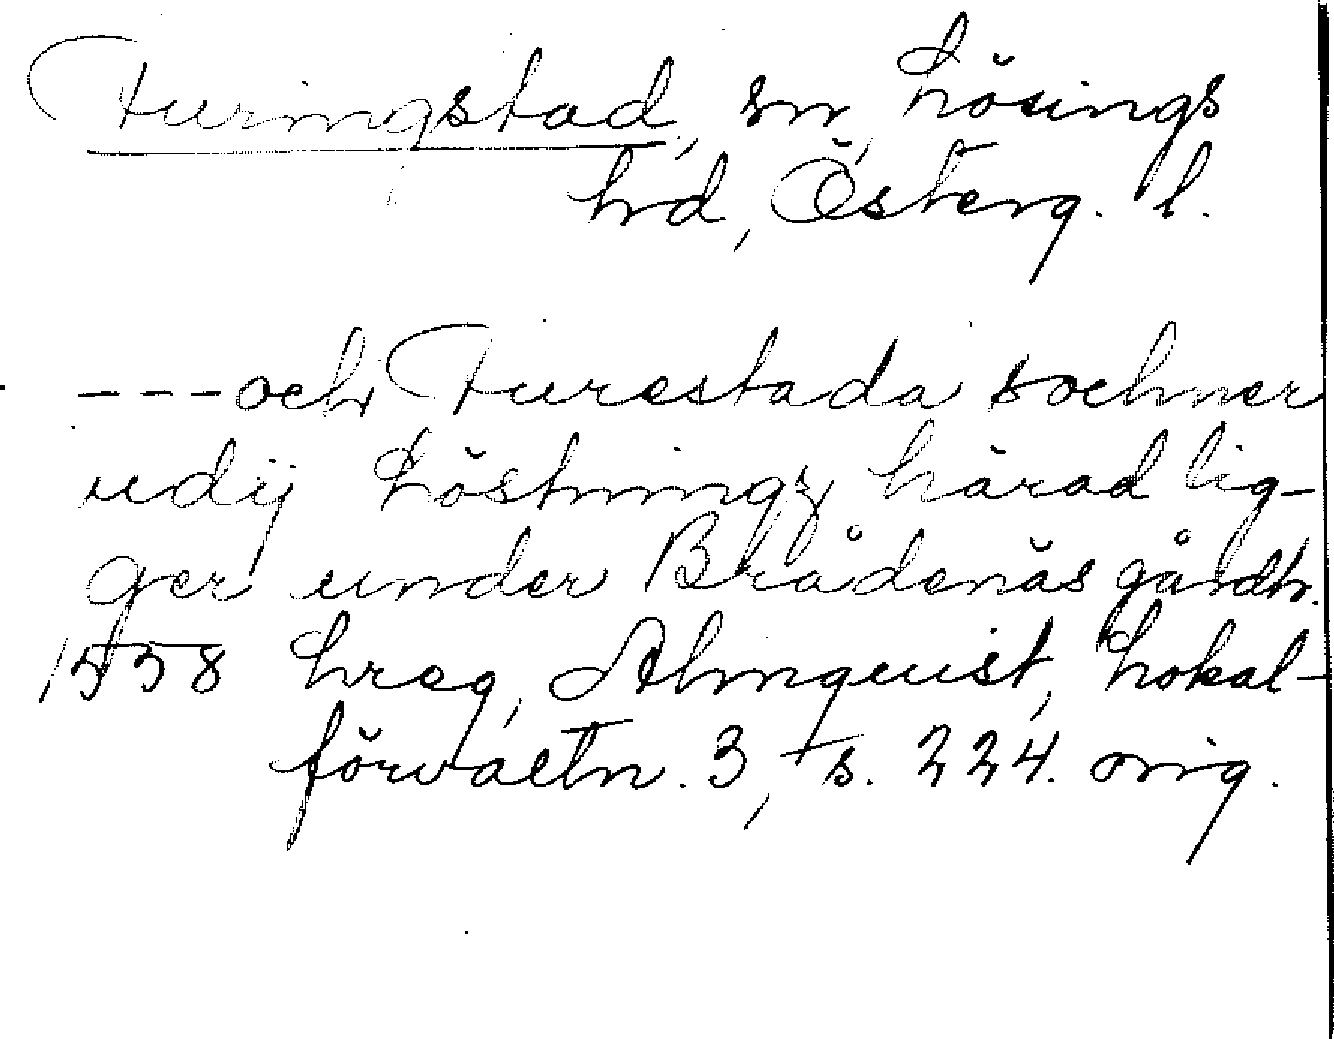 Furingstad, sn, Lösings
hd, Österg. l.
---och Furestada sochner
udij Lösthningz härad lig-
ger under Brådenäs gårdh.
1558 Lreg, Almquist, Lokal-
förvaltn. 3, s. 224. orig.